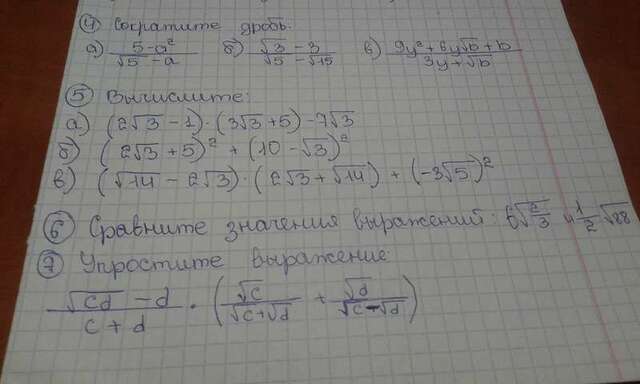 ④ Сократите дробь.
а) (5-a²)/(√5-a) б) (√3-3)/(√5-√15) в) (9y²+6y√b+b)/(3y+√b)
⑤ Вычислите:
а) (2√3-1)·(3√3+5)-7√3
б) (2√3+5)²+(10-√3)²
в) (√14-2√3)·(2√3+√14)+(-3√5)²
⑥ Сравните значения выражений: 6√(2/3) и 1/2√88
⑦ Упростите выражение:
(√cd-d)/(c+d)·(√c/(√c+√d)+√d/(√c-√d))